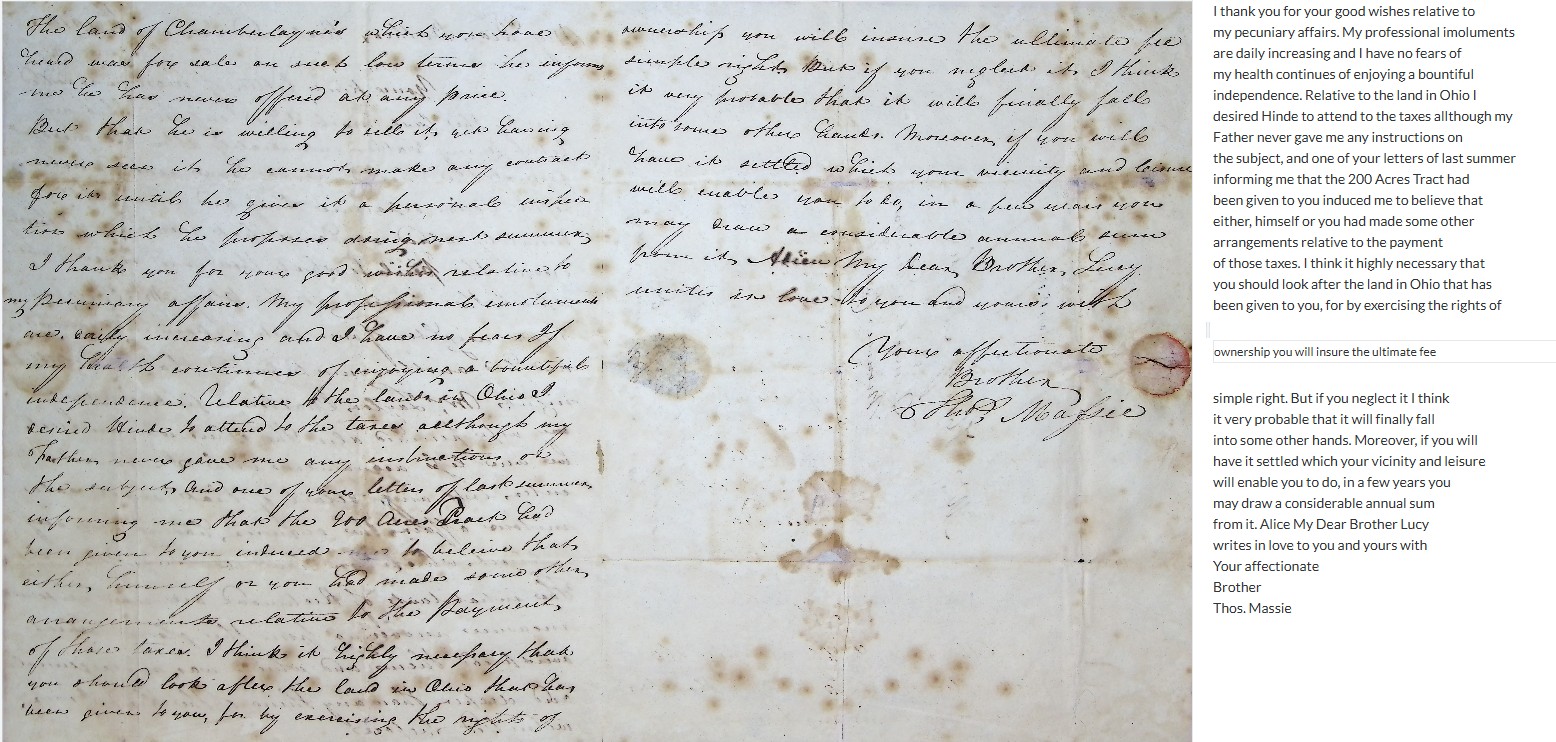 The land of Chamberlayne's which you have
heard was for sale on such low terms he informs
me he has never offered at any price.
But that he is willing to sell it, yet having
never seen it he cannot make any contract
for it until he gives it a personal inspec
tion which he proposes doing next summer,
I thank you for your good wishes relative to
my pecuniary affairs. My professional imoluments
are daily increasing and I have no fears If
my health continues of enjoying a bountiful
independence. Relative to the land in Ohio I
desired Hinde to attend to the taxes allthough my
Father never gave me any instructions on
the subject, and one of your letters of last summer
informing me that the 200 Acres Tract had
been given to you induced me to beleive that
either, himself or you had made some other
arrangements relative to the Payment,
of those taxes. I think it highly necessary that
you should look after the land in Ohio that has
been given to you, for by exercising the rights of
ownership you will insure the ultimate fee
simple right. But if you neglect it I think
it very probable that it will finally fall
into some other hands. Moreover, if you will
have it settled which your vicinity and leisure
will enable you to do, in a few years you
may draw a considerable annual sum
from it. Adieu My Dear Brother, Lucy
unites in love to you and yours with
Your affectionate
Brother
Thos. Massie
I thank you for your good wishes relative to
my pecuniary affairs. My professional imoluments
are daily increasing and I have no fears of
my health continues of enjoying a bountiful
independence. Relative to the land in Ohio I
desired Hinde to attend to the taxes allthough my
Father never gave me any instructions on
the subject, and one of your letters of last summer
informing me that the 200 Acres Tract had
been given to you induced me to believe that
either, himself or you had made some other
arrangements relative to the payment
of those taxes. I think it highly necessary that
you should look after the land in Ohio that has
been given to you, for by exercising the rights of
ownership you will insure the ultimate fee
simple right. But if you neglect it I think
it very probable that it will finally fall
into some other hands. Moreover, if you will
have it settled which your vicinity and leisure
will enable you to do, in a few years you
may draw a considerable annual sum
from it. Alice My Dear Brother Lucy
writes in love to you and yours with
Your affectionate
Brother
Thos. Massie